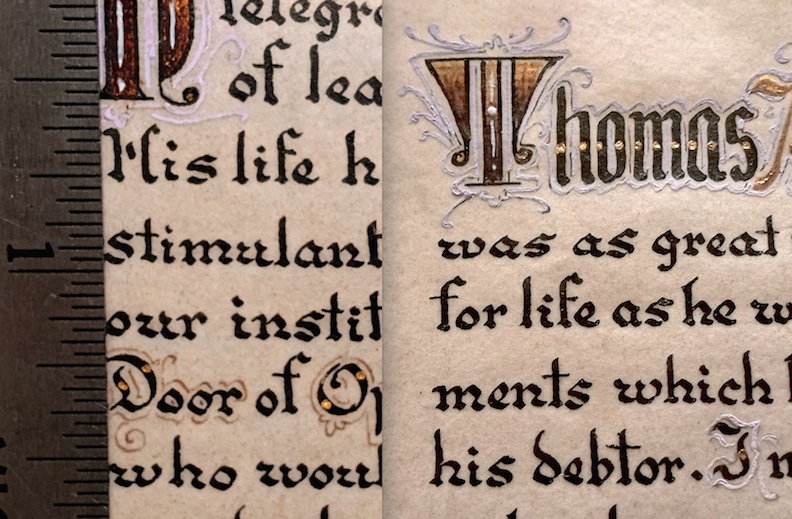 of lea
His life h
stimulant
our instit
Door of Op
who woul
1
Thomas
was as great
for life as he w
ments which
his debtor. In